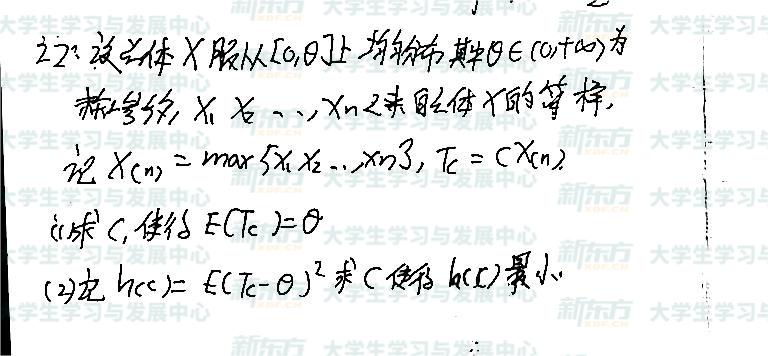 22:设总体X服从[0,θ]上均匀分布,其中θ∈(0,+∞)为
未知参数,X₁ X₂ ...,Xn是来自总体X的简样,
记X(n)=max{X₁X₂...,Xn},Tc=CX(n).
(1)求C,使得E(Tc)=θ
(2)记h(c)=E(Tc-θ)²求C使得h(c)最小
新东方 XDF.CN 大学生学习与发展中心